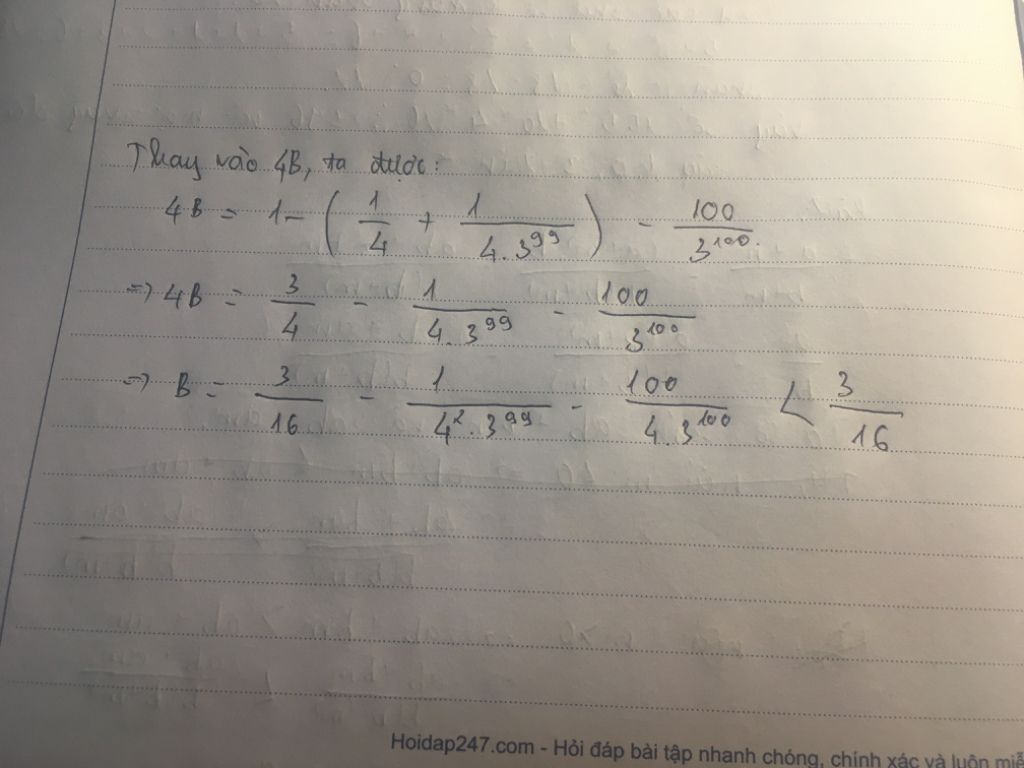 Thay vào 4B, ta được:
4B = 1 - ( 1/4 + 1/(4.3^99) ) - 100/3^100.
=> 4B = 3/4 - 1/(4.3^99) - 100/3^100
=> B = 3/16 - 1/(4^2.3^99) - 100/(4.3^100) < 3/16
Hoidap247.com - Hỏi đáp bài tập nhanh chóng, chính xác và luôn